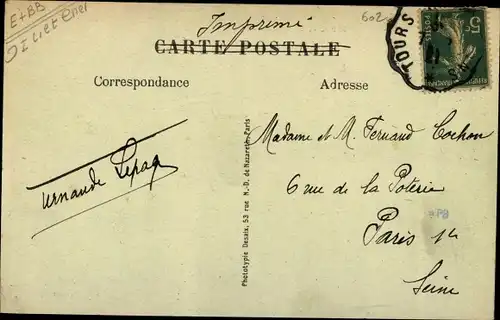 E+BB
I Liet Chel
Imprimé
602
CARTE POSTALE
TOURS
5c
Correspondance
Adresse
Madame et M. Fernand Cochon
6 rue de la Poterie
Paris 1r
Seine
Fernande Lepag
Phototypie Desaix, 53 rue N.-D. de Nazareth, Paris
PB